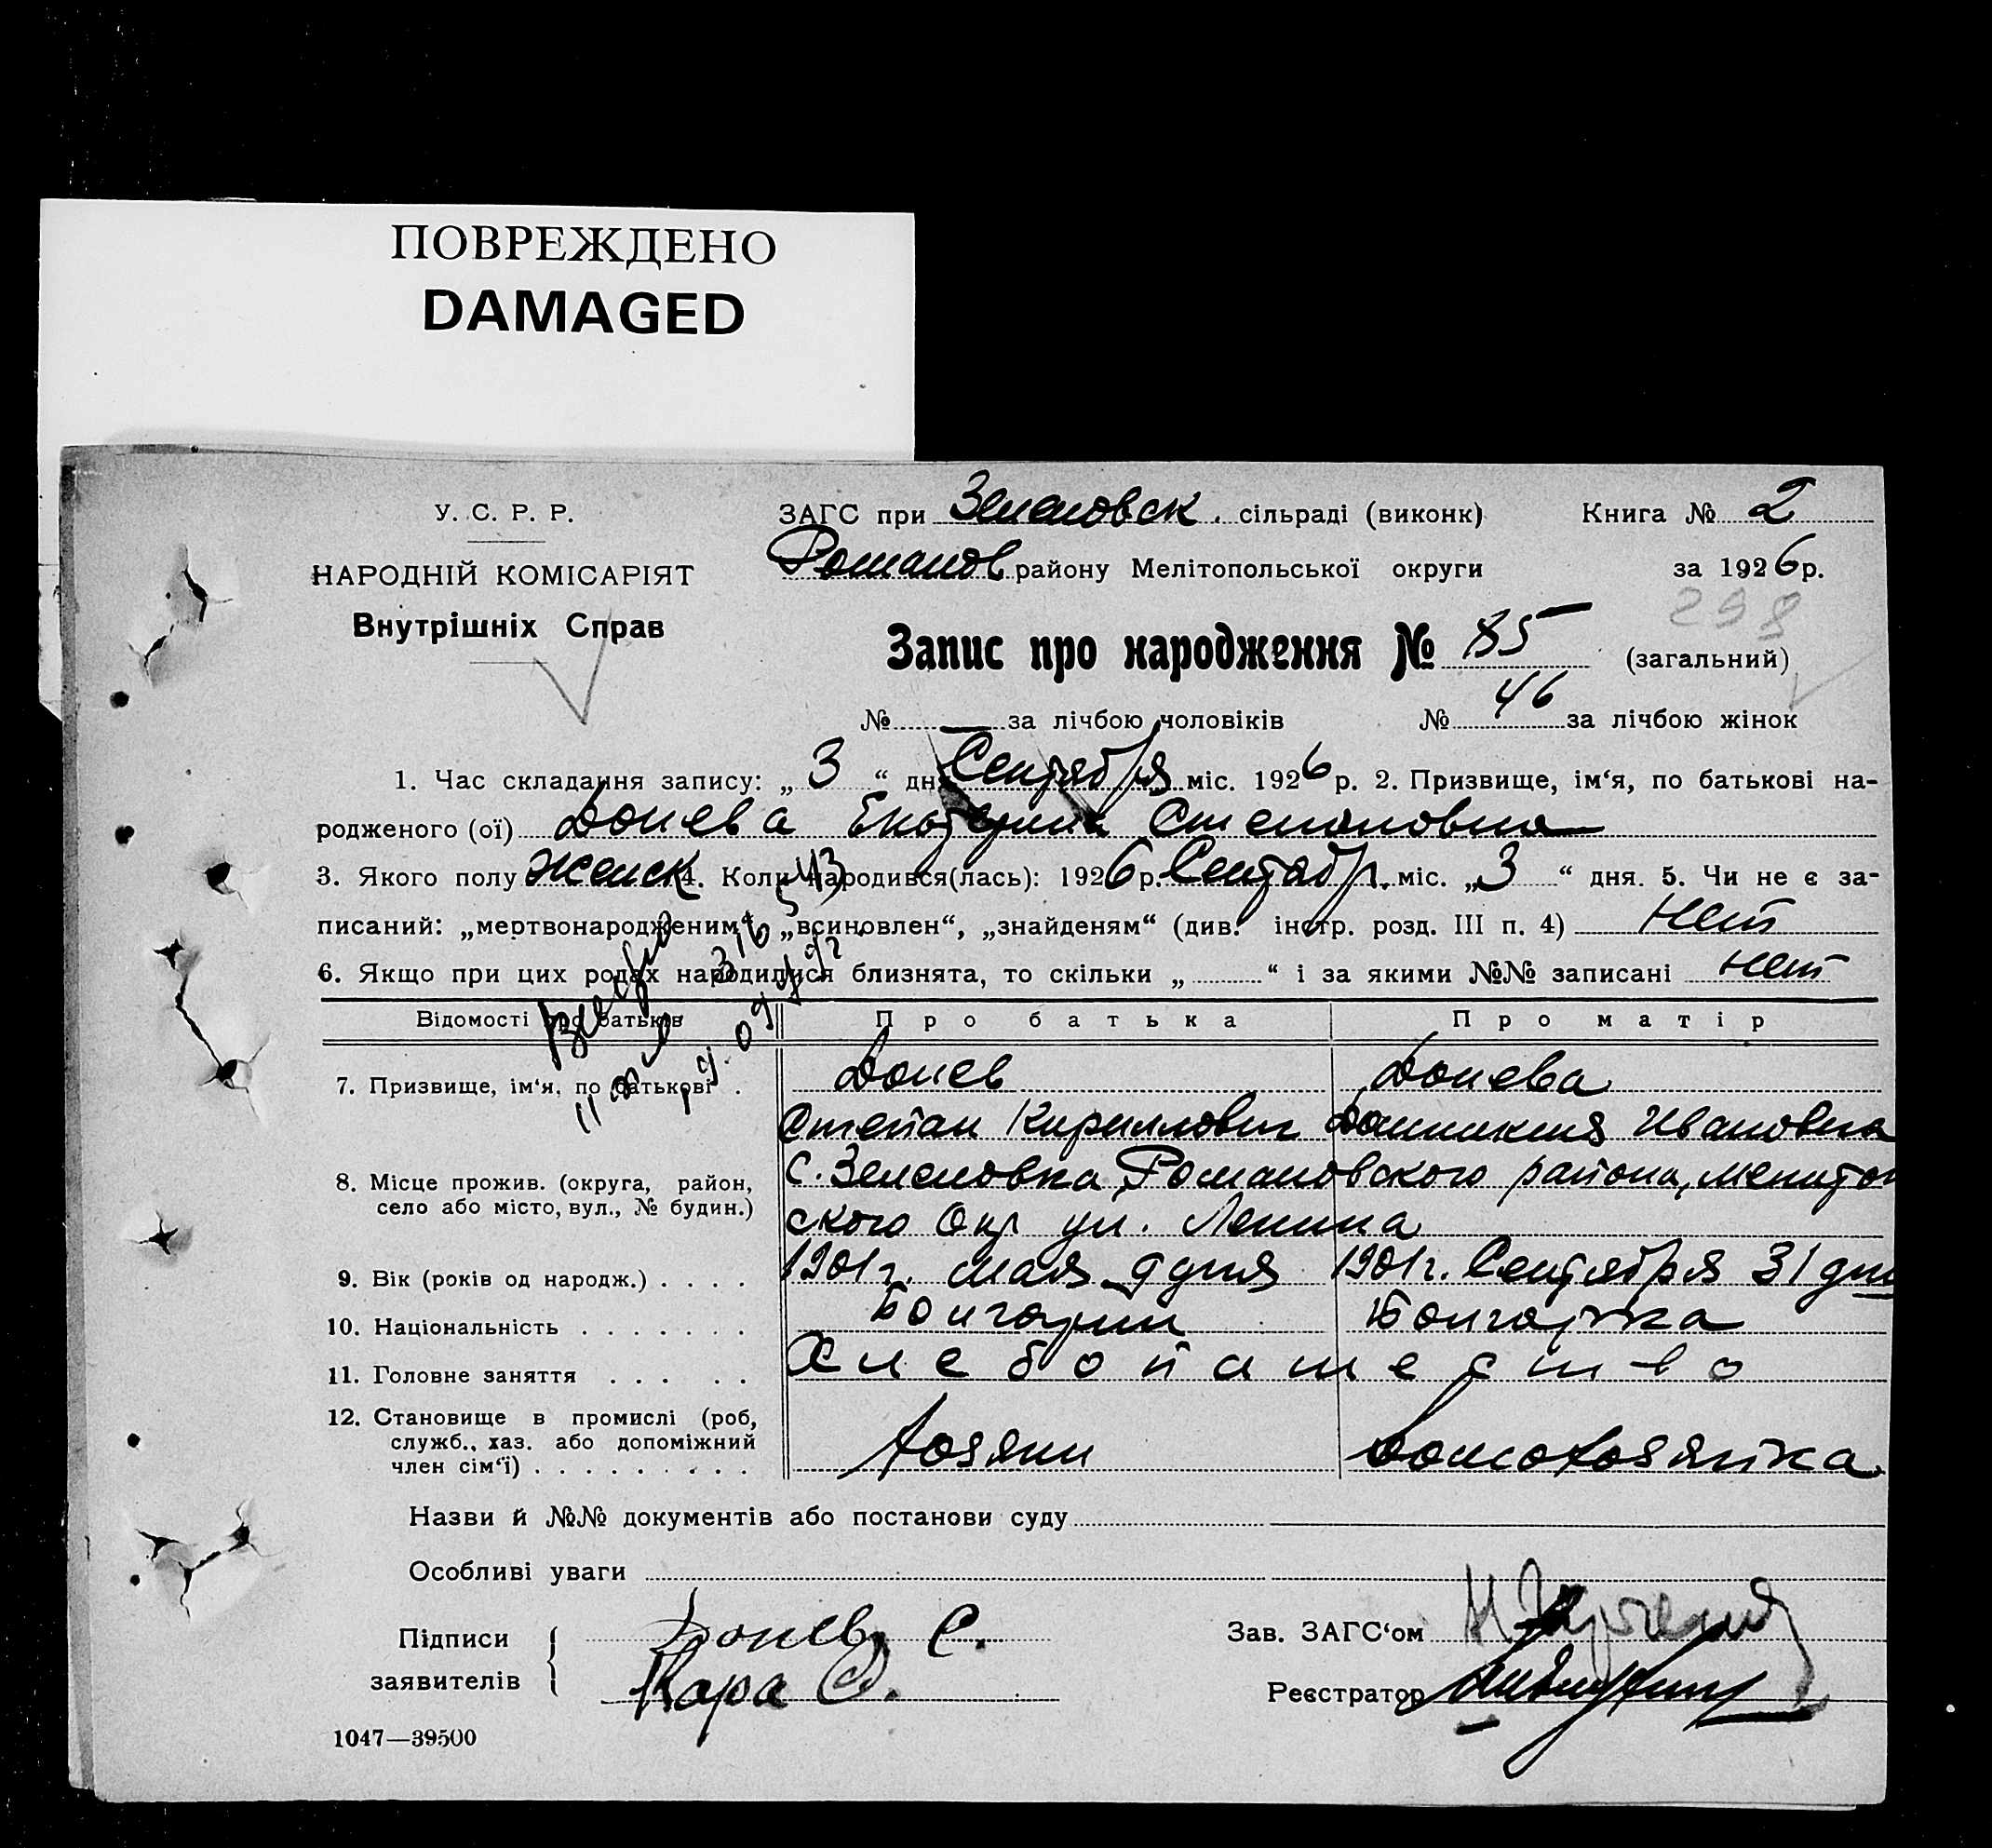 ПОВРЕЖДЕНО
DAMAGED
У. С. Р. Р.
НАРОДНІЙ КОМІСАРІЯТ
Внутрішніх Справ
ЗАГС при Зеленовск. сільраді (виконк)
Романов району Мелітопольської округи
Книга № 2
за 1926 р.
298
Запис про народження № 85 (загальний)
№ — за лічбою чоловіків № 46 за лічбою жінок
1. Час складання запису: „ 3 “ дня Сентября міс. 1926 р. 2. Призвище, ім‘я, по батькові на-
родженого (ої) Донева Екатерина Степановна
3. Якого полу женск 4. Коли народився(лась): 1926 р. Сентабр. міс. „ 3 “ дня. 5. Чи не є за-
писаний: „мертвонародженим“, „всиновлен“, „знайденям“ (див. інстр. розд. III п. 4) Нет
6. Якщо при цих родах народилися близнята, то скільки „ “ і за якими №№ записані нет
Відомості про батьків Про батька Про матір
7. Призвище, ім‘я, по батькові . Донев Донева
Степан Кириллович Доминикия Ивановна
8. Місце прожив. (округа, район, село або місто, вул., № будин.) с. Зеленовка, Романовского района, мелитоп
ского Окр ул. Ленина
9. Вік (років од народж.) . . . . 1901 г. мая 9 дня 1901 г. Сентября 31 дня
10. Національність . . . . . . . Болгарин Болгарка
11. Головне заняття . . . . . Хлебопашество
12. Становище в промислі (роб, служб., хаз. або допоміжний член сім‘ї) . . . . . . . . . Хозяин Домохозяйка
Назви й №№ документів або постанови суду
Особливі уваги
Підписи заявителів Донев С.
Кара С.
Зав. ЗАГС‘ом
Реєстратор
1047—39500